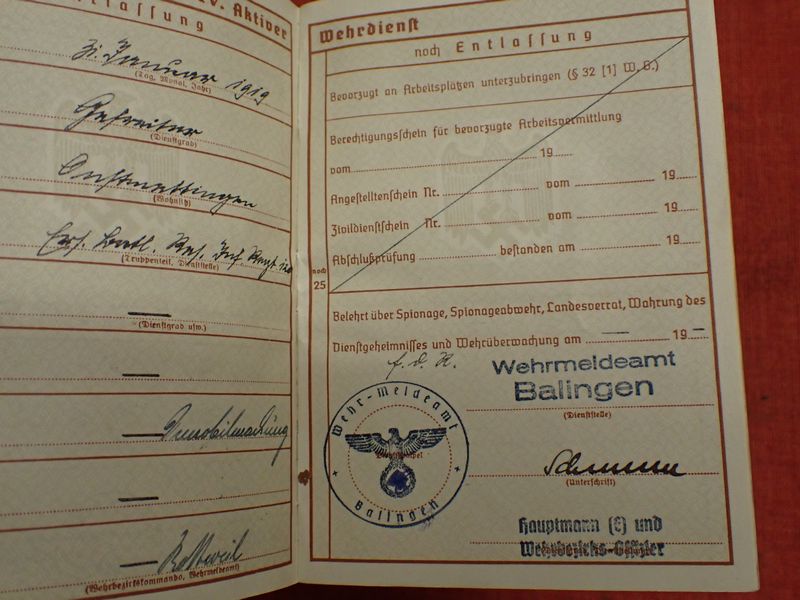 v. Aktiver
Entlassung
31. Januar 1919
(Tag, Monat, Jahr)
Gefreiter
(Dienstgrad)
Onstmettingen
(Wohnsitz)
Ers. Batl. Res. Inf. Regt
(Truppenteil, Dienststelle)
—
(Dienstgrad usw.)
—
— Demobilmachung
—
— Rottweil
(Wehrbezirkskommando, Wehrmeldeamt)
Wehrdienst
noch Entlassung
Bevorzugt an Arbeitsplätzen unterzubringen (§ 32 [1] W. G.)
Berechtigungsschein für bevorzugte Arbeitsvermittlung
vom 19
Angestelltenschein Nr. vom 19
Zivildienstschein Nr. vom 19
Abschlußprüfung bestanden am 19
noch
25
Belehrt über Spionage, Spionageabwehr, Landesverrat, Wahrung des
Dienstgeheimnisses und Wehrüberwachung am — 19 —
f. d. R.
Wehrmeldeamt
Balingen
(Dienststelle)
Wehr-Meldeamt
Balingen
(Unterschrift)
Hauptmann (E) und
Wehrbezirks-Offizier